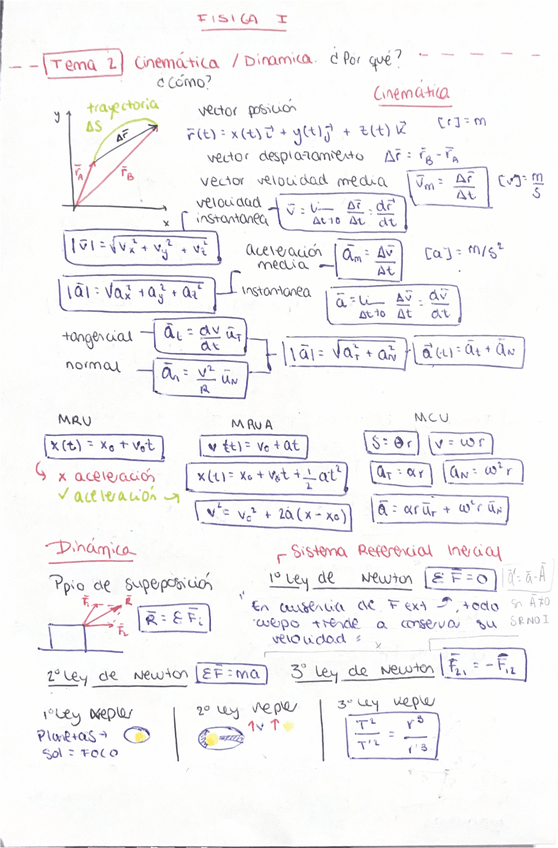 FISICA I
Tema 2 Cinemática / Dinamica. ¿Por qué?
¿Cómo?
Cinemática
y
trayectoria
ΔS
Δr̄
r̄A
r̄B
x
vector posición
r̄(t) = x(t)i⃗ + y(t)j⃗ + z(t)k⃗ [r] = m
vector desplazamiento Δr̄ = r̄B - r̄A
vector velocidad media v̄m = Δr̄/Δt [v] = m/s
velocidad instantanea v̄ = Li Δt→0 Δr̄/Δt = dr̄/dt
|v̄| = √vx² + vy² + vz²
aceleración media ām = Δv̄/Δt [a] = m/s²
|ā| = √ax² + ay² + az²
instantanea ā = Li Δt→0 Δv̄/Δt = dv̄/dt
tangencial āt = dv/dt ūT
normal ān = v²/R ūN
|ā| = √aT² + aN²
ā(t) = āt + āN
MRU
x(t) = x0 + v0t
x aceleración
✓ aceleración →
MRUA
v(t) = v0 + at
x(t) = x0 + v0t + 1/2 at²
v² = v0² + 2a(x - x0)
MCU
S = θr v = ωr
aT = αr aN = ω²r
ā = αr ūT + ω²r ūN
Dinámica
Sistema Referencial Inercial
Ppio de superposición
F1 R̄
F2
R̄ = ΣF̄i
1º Ley de Newton ΣF̄ = 0
ā' = ā - Ā
si Ā≠0
SRNOI
"En ausencia de F ext, todo
cuerpo tiende a conservar su
velocidad"
2º Ley de Newton ΣF̄ = ma
3º Ley de Newton F̄21 = -F̄12
1º Ley Kepler
Planetas →
Sol = FOCO
2º Ley Kepler
↑v ↑
3º Ley Kepler
T²/T'² = r³/r'³